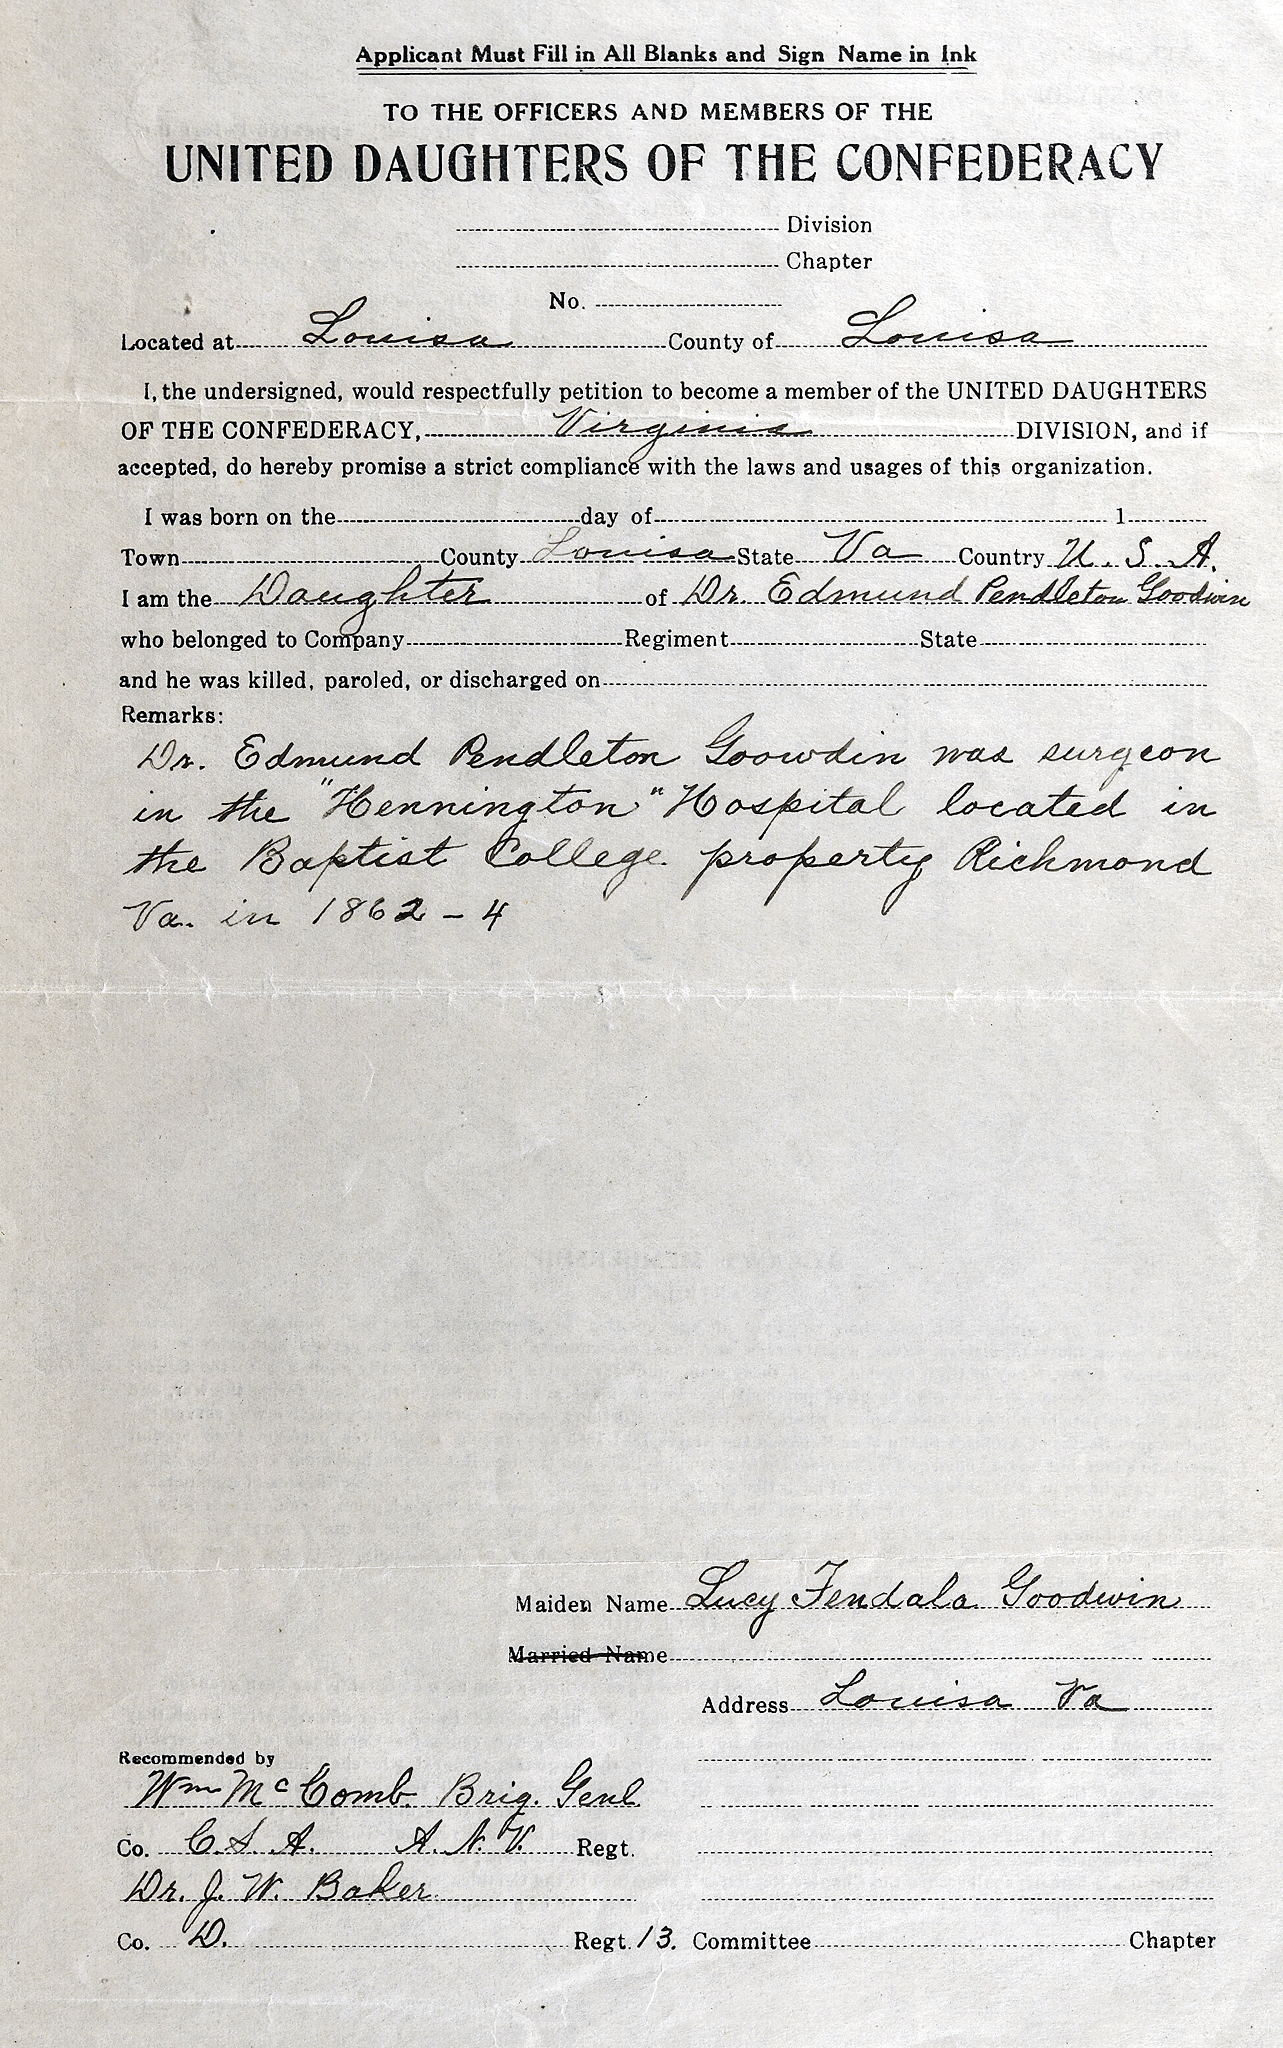 Applicant Must Fill in All Blanks and Sign Name in Ink
TO THE OFFICERS AND MEMBERS OF THE
UNITED DAUGHTERS OF THE CONFEDERACY
Division
Chapter
No.
Located at Louisa County of Louisa
I, the undersigned, would respectfully petition to become a member of the UNITED DAUGHTERS
OF THE CONFEDERACY, Virginia DIVISION, and if
accepted, do hereby promise a strict compliance with the laws and usages of this organization.
I was born on the day of 1
Town County Louisa State Va Country U. S. A.
I am the Daughter of Dr. Edmund Pendleton Goodwin
who belonged to Company Regiment State
and he was killed, paroled, or discharged on
Remarks:
Dr. Edmund Pendleton Goowdin was surgeon
in the "Hennington" Hospital located in
the Baptist College property Richmond
Va. in 1862 - 4
Maiden Name Lucy Fendala Goodwin
Married Name
Address Louisa Va
Recommended by
Wm McComb. Brig. Genl
Co. C.S.A. A.N.V. Regt.
Dr. J. W. Baker
Co. D. Regt. 13. Committee Chapter